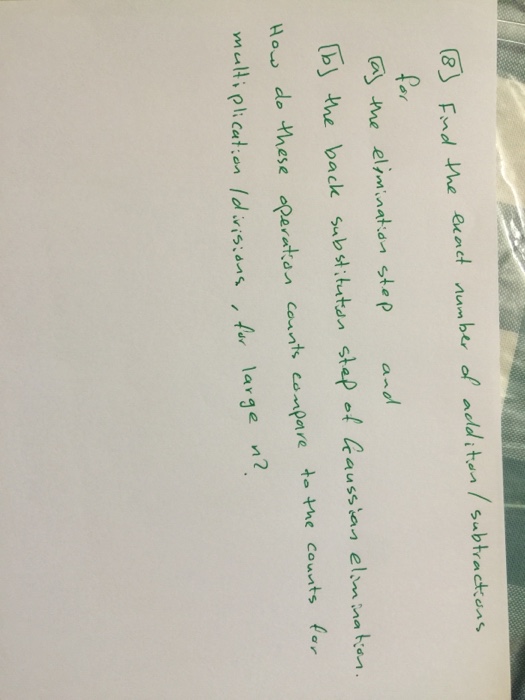 [8] Find the exact number of addition/subtractions
for
[a] the elimination step and
[b] the back substitution step of Gaussian elimination.
How do these operation counts compare to the counts for
multiplication/divisions, for large n?